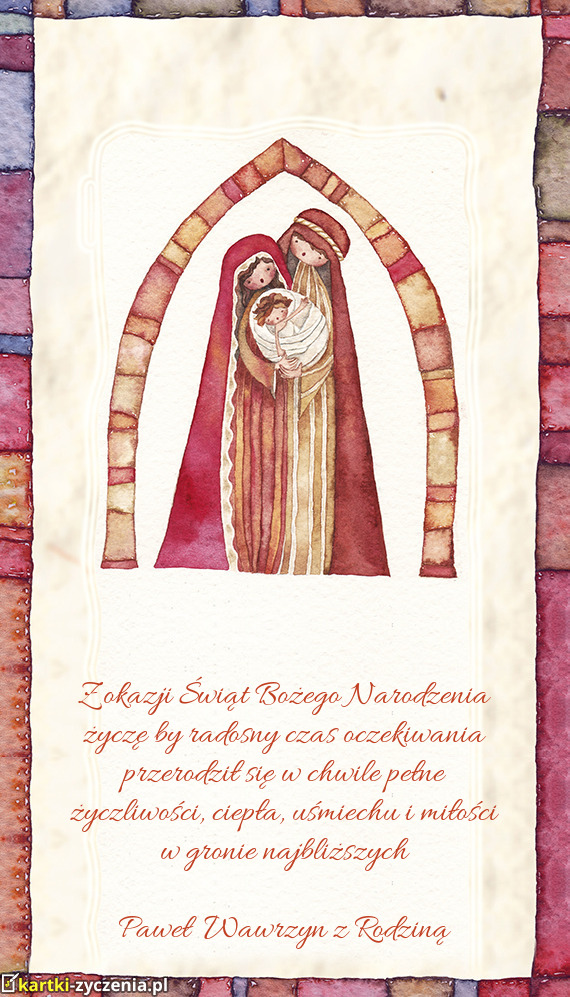 Z okazji Świąt Bożego Narodzenia
życzę by radosny czas oczekiwania
przerodził się w chwile pełne
życzliwości, ciepła, uśmiechu i miłości
w gronie najbliższych
Paweł Wawrzyn z Rodziną
kartki-zyczenia.pl